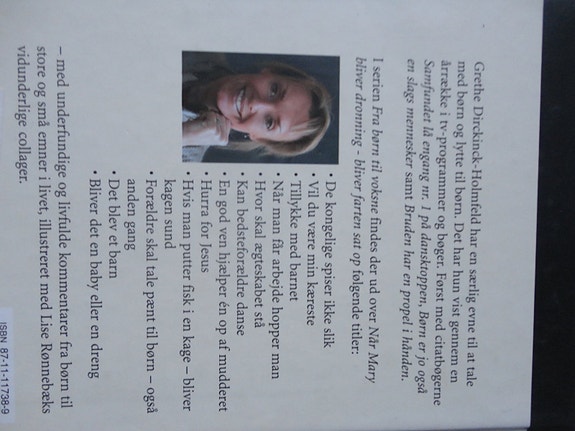 Grethe Dirckinck-Holmfeld har en særlig evne til at tale
med børn og lytte til børn. Det har hun vist gennem en
årrække i tv-programmer og bøger. Først med citatbøgerne
Samfundet lå engang nr. 1 på dansktoppen, Børn er jo også
en slags mennesker samt Bruden har en propel i hånden.
I serien Fra børn til voksne findes der ud over Når Mary
bliver dronning - bliver farten sat op følgende titler:
• De kongelige spiser ikke slik
• Vil du være min kæreste
• Tillykke med barnet
• Når man får arbejde hopper man
• Hvor skal ægteskabet stå
• Kan bedsteforældre danse
• En god ven hjælper én op af mudderet
• Hurra for Jesus
• Hvis man putter fisk i en kage – bliver
kagen sund
• Forældre skal tale pænt til børn – også
anden gang
• Det blev et barn
• Bliver det en baby eller en dreng
– med underfundige og livfulde kommentarer fra børn til
store og små emner i livet, illustreret med Lise Rønnebæks
vidunderlige collager.
ISBN 87-11-11738-9